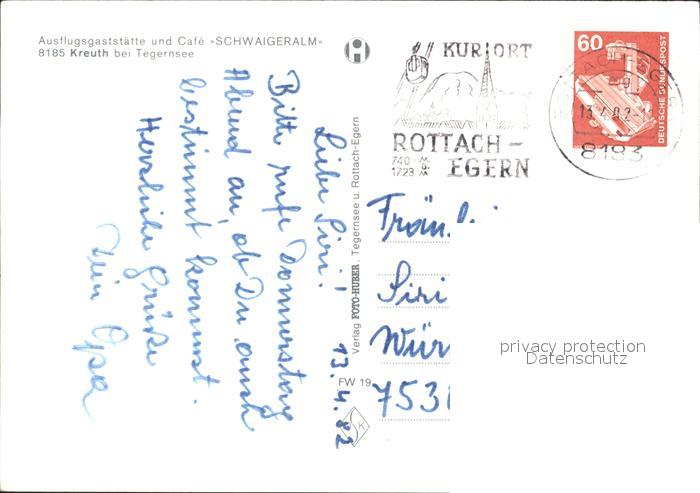 Ausflugsgaststätte und Café »SCHWAIGERALM«
8185 Kreuth bei Tegernsee
KURORT
ROTTACH-
EGERN
740-
1723 M
60
DEUTSCHE BUNDESPOST
13.4.82-11
8183
13.4.82
Liebe Siri!
Bitte rufe Donnerstag
Abend an, ob Du auch
bestimmt kommst.
Herzliche Grüße
Dein Opa
Verlag FOTO-HUBER, Tegernsee u. Rottach-Egern
FW 19
Siri
753
privacy protection
Datenschutz